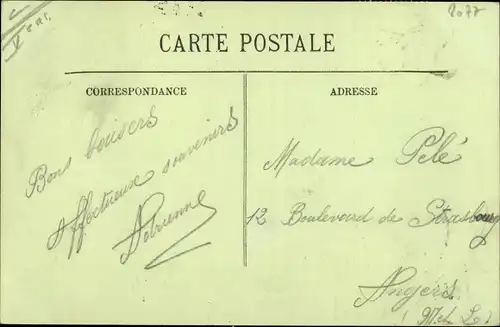 2077
CARTE POSTALE
CORRESPONDANCE
ADRESSE
Bons baisers
Affectueux souvenirs
Adrienne
Madame Pelé
12 Boulevard de Strasbourg
Angers